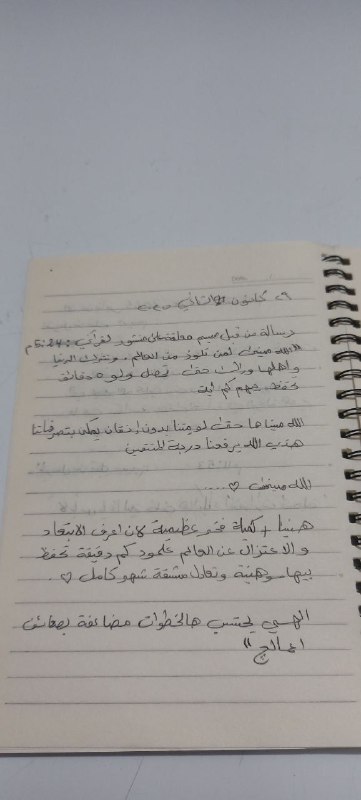 ٢٩ كانون الثاني
رسالة من قبل ميسم معلقة على منشور لقرآن : 5:24 م
الله مينسى لمن تلوذ من العالم ، وتترك الدنيا
واهلها وراك حتى تحصل ولو ٥ دقائق
تحفظ بيهم كم آية
الله مينساها حتى لو مننا بدون إتقان يمكن بتصرفاتنا
هذي الله يرفعنا درجة المتقين
الله مينسى ♡ ......
هنيئا + كمية فخر عظيمة لان اعرف الابتعاد
والاعتزال عن العالم علمود كم دقيقة تحفظ
بيها وهنية وتعادل مشقة شهر كامل ♡ .
الهي يحتسب هالخطوات مضاعفة بصحائف
اعمالج "